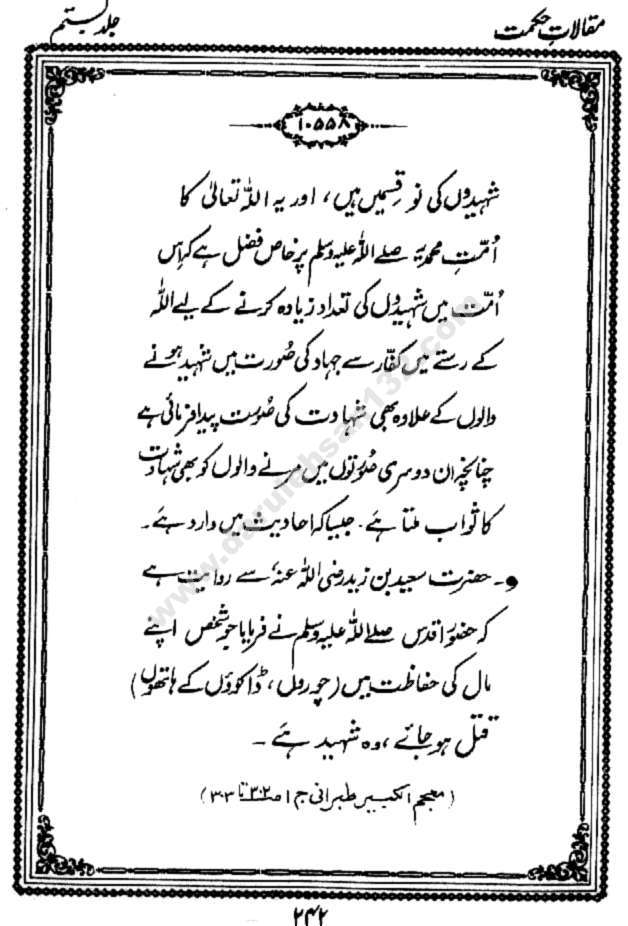 مقالاتِ حکمت
جلد بستم
۱۰۵۵۸
شہیدوں کی نو قسمیں ہیں، اور یہ اللہ تعالیٰ کا
اُمّتِ محمدیہ صلے اللہ علیہ وسلم پر خاص فضل ہے کہ اس
اُمّت میں شہیدوں کی تعداد زیادہ کرنے کے لیے اللہ
کے رستے میں کفّار سے جہاد کی صُورت میں شہید ہونے
والوں کے علاوہ بھی شہادت کی صُورت پیدا فرمائی ہے
چنانچہ ان دوسری صُورتوں میں مرنے والوں کو بھی شہادت
کا ثواب ملتا ہے۔ جیسا کہ احادیث میں وارد ہے۔
●۔ حضرت سعید بن زید رضی اللہ عنہٗ سے روایت ہے
کہ حضورِ اقدس صلے اللہ علیہ وسلم نے فرمایا جو شخص اپنے
مال کی حفاظت میں (چوروں، ڈاکوؤں کے ہاتھوں)
قتل ہو جائے، وہ شہید ہے۔
(معجم الکبیر طبرانی ج ۱ صـ ۳۰۲ تا ۳۰۳)
۲۴۲
www.darulehsan132.com